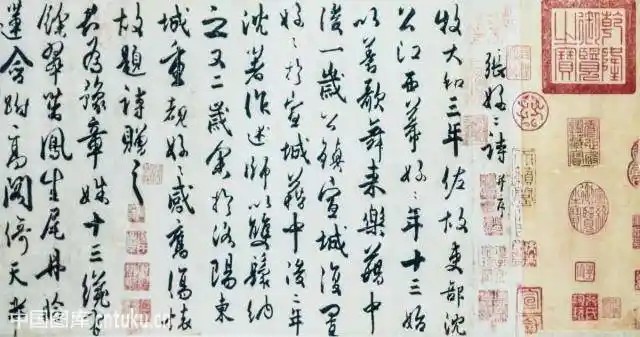 乾隆御覽之寶
張好〻詩 并序
牧大和三年佐故吏部沈
公江西幕好〻年十三始
以善歌舞來樂籍中
後一歲公鎮宣城復置
好〻於宣城籍中後二年
沈著作述師以雙鬟納
之又二歲余於洛陽東
城重覩好〻感舊傷懷
故題詩贈之
君為豫章姝十三纔有
餘翠茁鳳生尾丹臉
蓮含跗高閣倚天半
中国图库 cntuku.cn